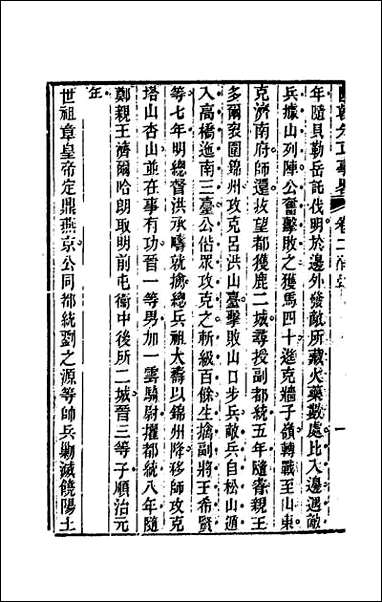 國朝先正事略 卷二 一
年隨貝勒岳託伐明於邊外發敵所藏火藥數處比入邊遇敵
兵據山列陣公奮擊敗之獲馬四十進克牆子嶺轉戰至山東
克濟南府師還拔望都獲鹿二城尋授副都統五年隨睿親王
多爾袞圍錦州攻克呂洪山臺擊敗山口步兵敵兵自松山遁
入高橋迤南三臺公偕眾攻克之斬級百餘生擒副將王希賢
等七年明總督洪承疇就擒總兵祖大壽以錦州降移師攻克
塔山杏山並在事有功晉一等男加一雲騎尉擢都統八年隨
鄭親王濟爾哈朗取明前屯衛中後所二城晉三等子順治元
年
世祖章皇帝定鼎燕京公同都統劉之源等帥兵勦滅饒陽土